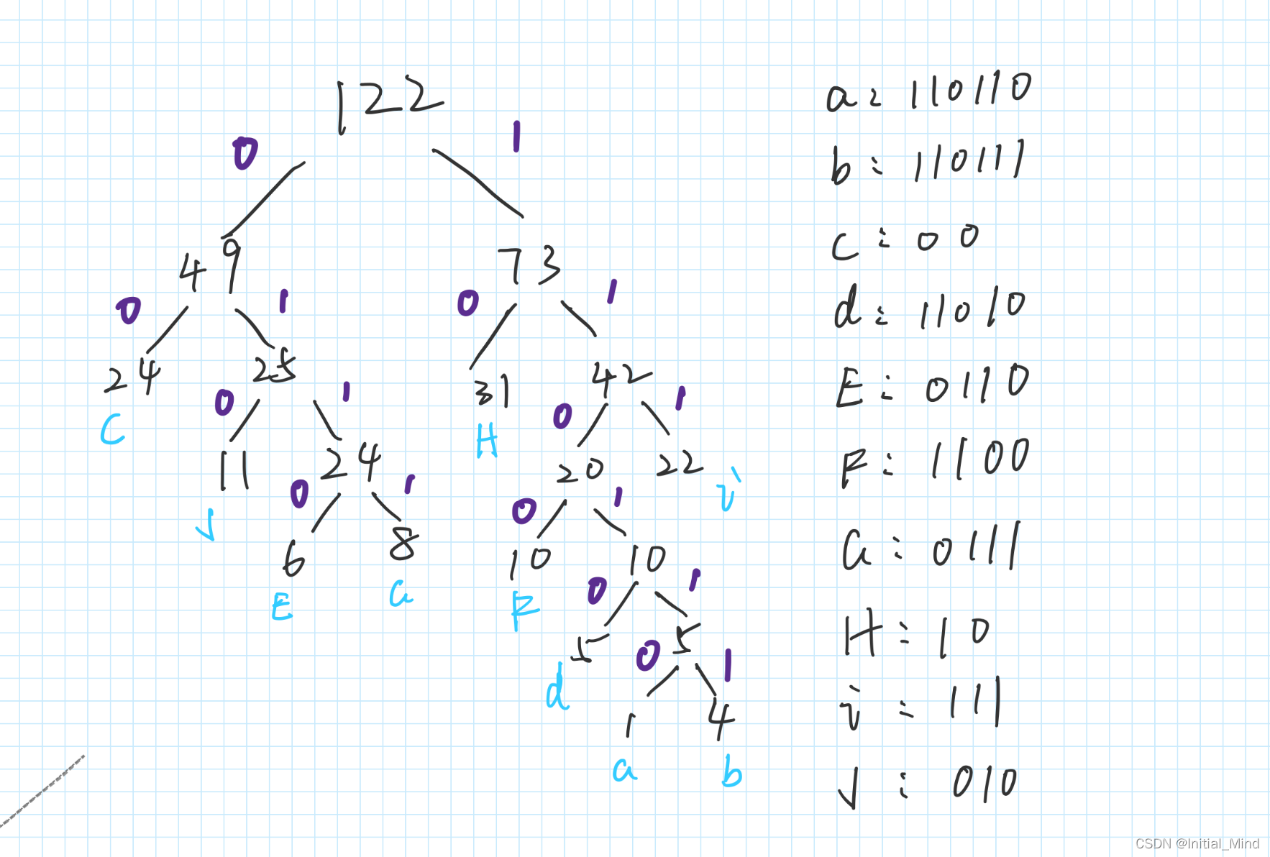 122
0 1
49 73
0 1 0 1
24 25 31 42
C 0 1 H 0 1
11 24 20 22
J 0 1 0 1 i
6 8 10 10
E G F 0 1
5 5
d 0 1
1 4
a b
a: 110110
b: 110111
c: 00
d: 11010
E: 0110
F: 1100
G: 0111
H: 10
i: 111
J: 010
CSDN @Initial_Mind